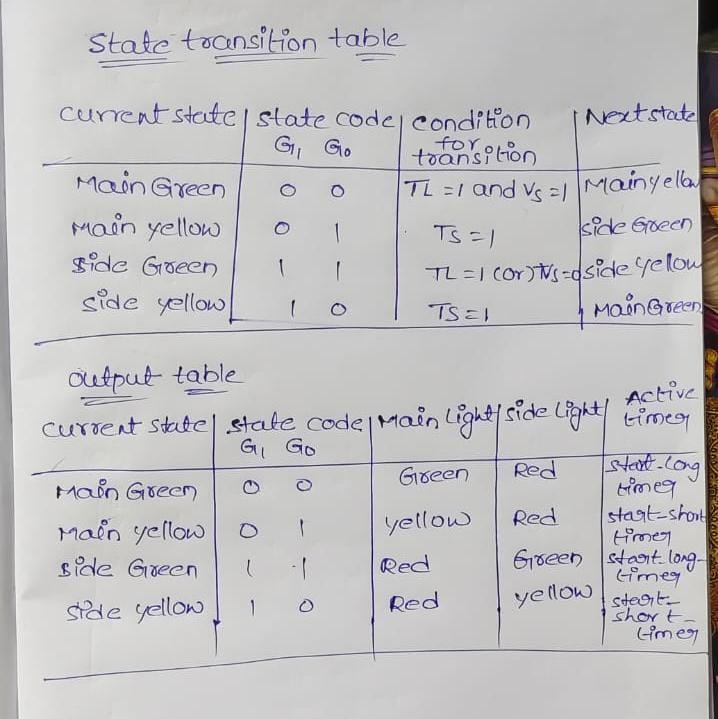 State transition table
current state | state code | condition for transition | Next state
G1 G0
Main Green 0 0 TL = 1 and Vs = 1 Main yellow
Main yellow 0 1 TS = 1 side Green
Side Green 1 1 TL = 1 (or) Vs = 0 side yellow
side yellow 1 0 TS = 1 Main Green
output table
current state | state code | Main light | side light | Active timer
G1 G0
Main Green 0 0 Green Red start-long timer
Main yellow 0 1 yellow Red start-short timer
Side Green 1 1 Red Green start long-timer
side yellow 1 0 Red yellow start-short-timer